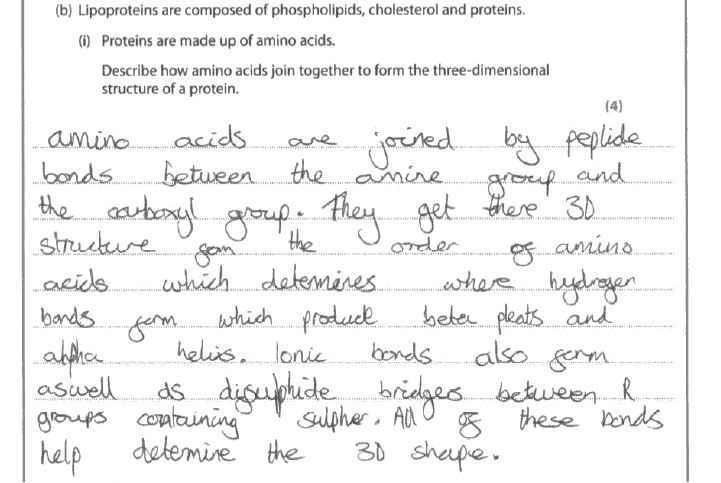 (b) Lipoproteins are composed of phospholipids, cholesterol and proteins.
(i) Proteins are made up of amino acids.
Describe how amino acids join together to form the three-dimensional
structure of a protein.
(4)
amino acids are joined by peptide
bonds between the amine group and
the carboxyl group. They get there 3D
structure from the order of amino
acids which determines where hydrogen
bonds form which produce beter pleats and
alpha helixs. Ionic bonds also form
aswell as disulphide bridges between R
groups containing sulpher. All of these bonds
help detemine the 3D shape.